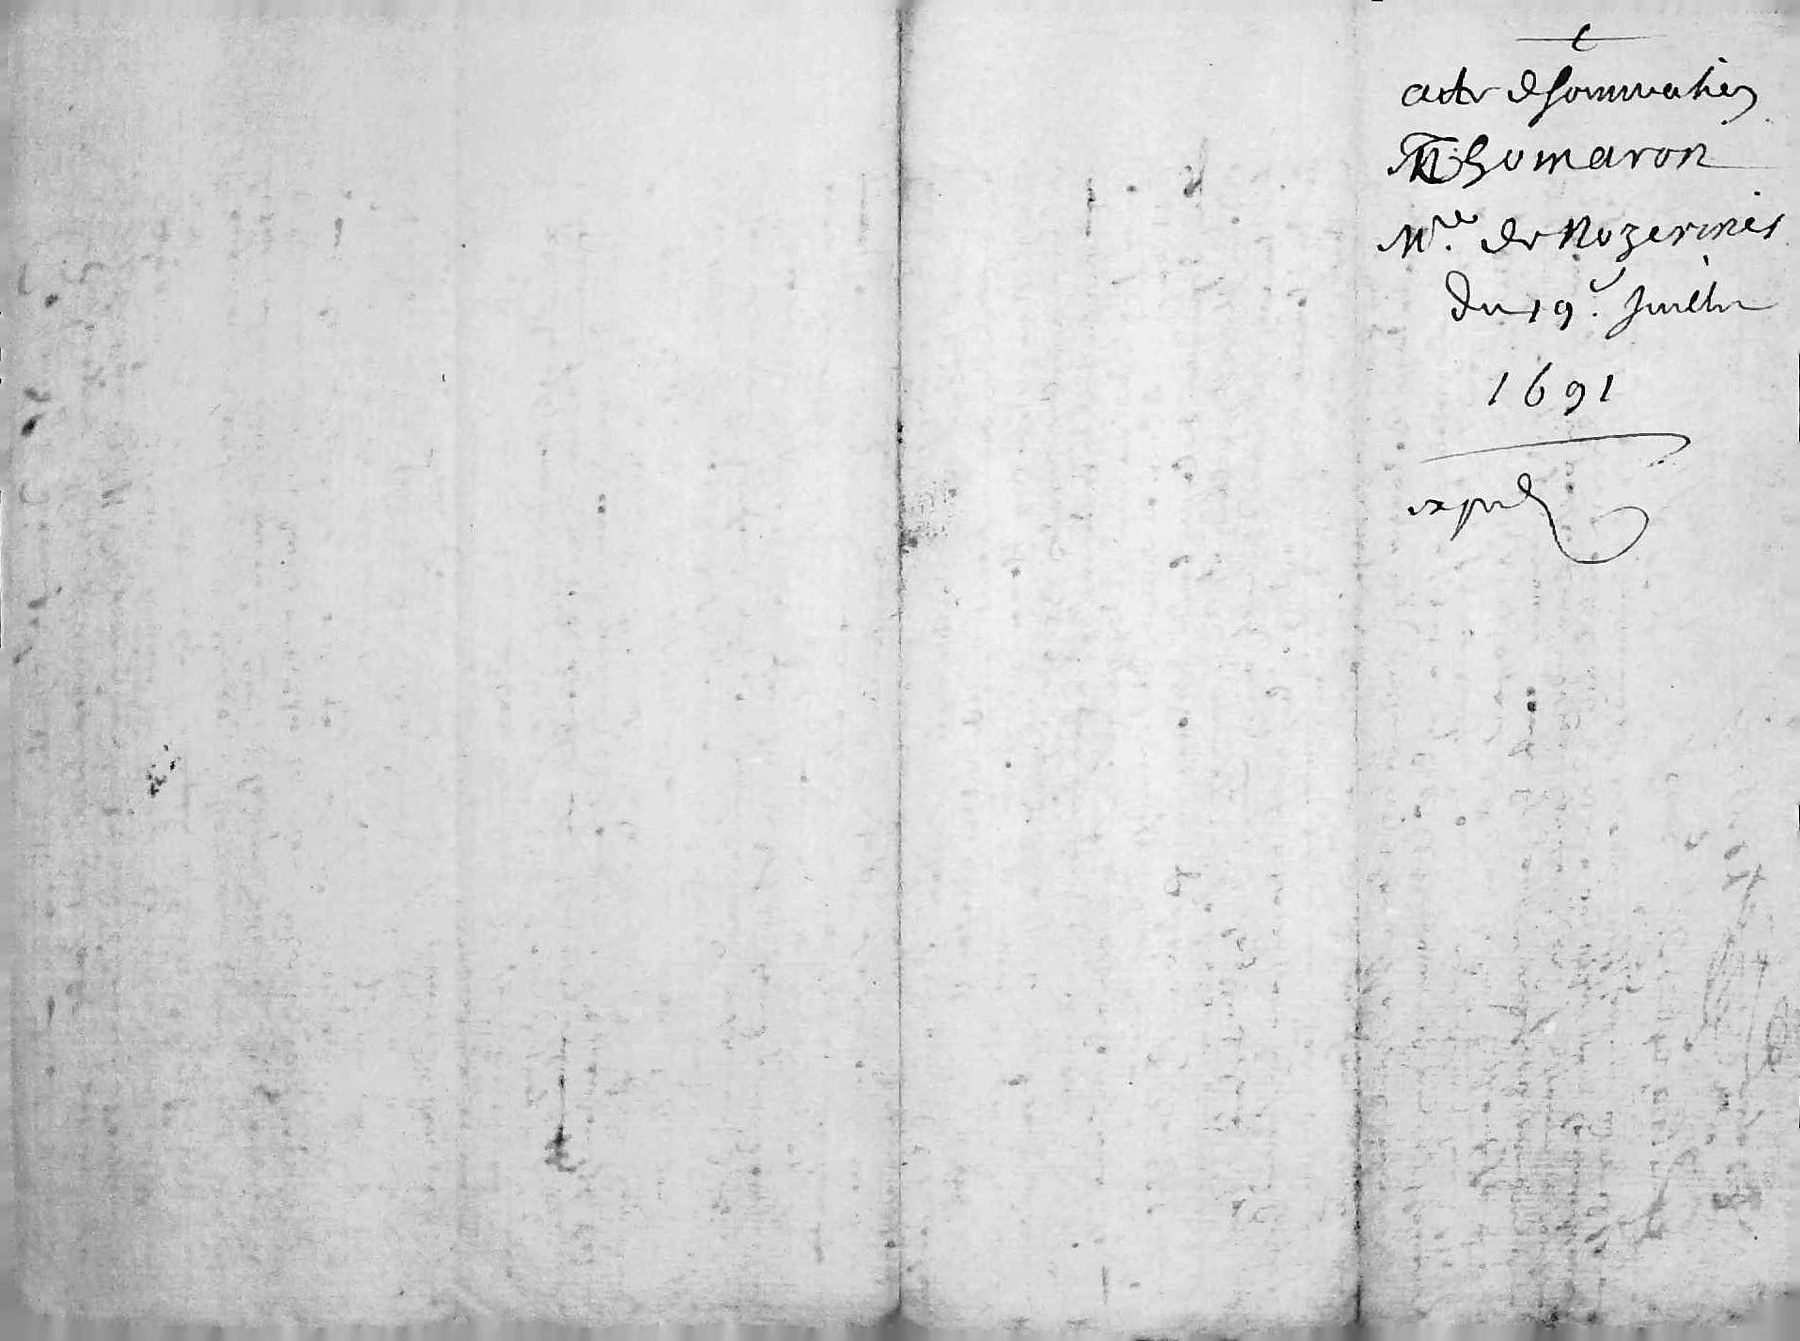 acte de sommation
Thomaron
Mre. de Nozerines
du 19e. Juillet
1691
exped